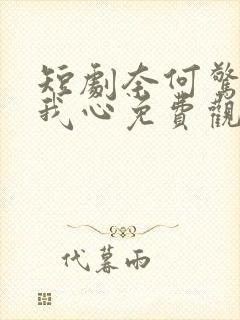 短劇奈何驚
我心免費觀
代暮雨